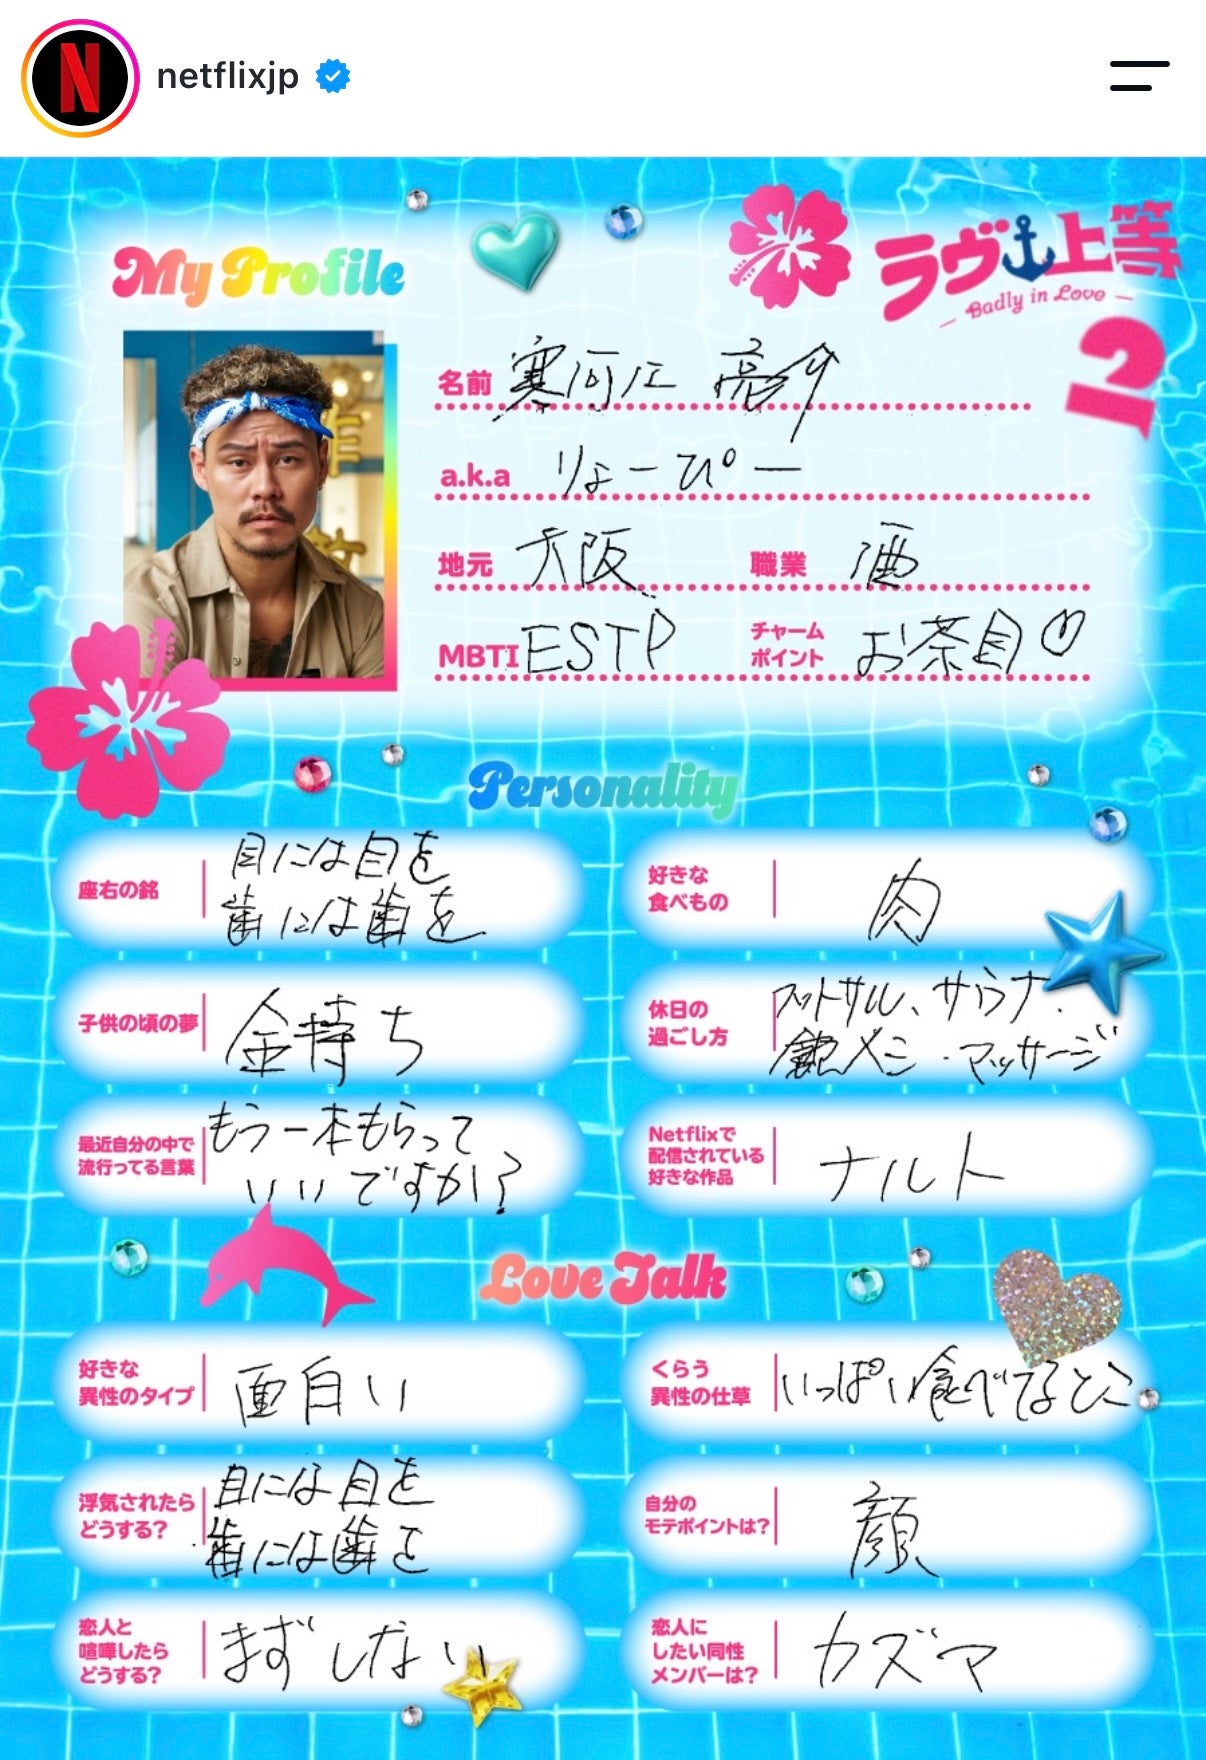 netflixjp
My Profile
ラヴ上等
Badly in Love
2
名前 寒河江 亮
a.k.a りょーぴー
地元 大阪
職業 酒
MBTI ESTP
チャーム
ポイント お茶目♡
Personality
座右の銘
目には目を
歯には歯を
好きな
食べもの
肉
子供の頃の夢
金持ち
休日の
過ごし方
フットサル、サウナ・
メシ・マッサージ
最近自分の中で
流行ってる言葉
もう一本もらって
いいですか?
Netflixで
配信されている
好きな作品
ナルト
Love Talk
好きな
異性のタイプ
面白い
くらう
異性の仕草
いっぱい食べてるとこ
浮気されたら
どうする?
目には目を
歯には歯を
自分の
モテポイントは?
顔
恋人と
喧嘩したら
どうする?
まずしない
恋人に
したい同性
メンバーは?
カズマ